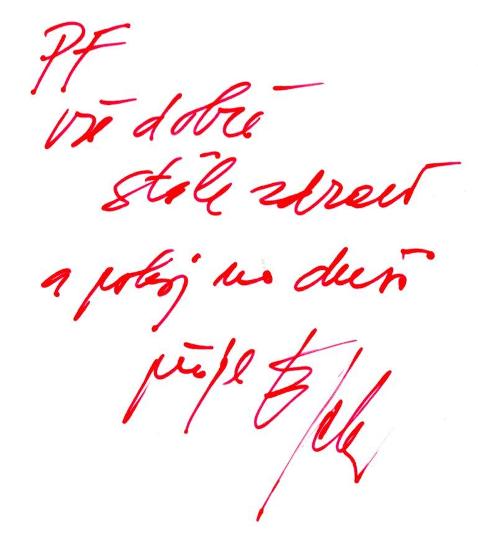 PF
vše dobré
stále zdraví
a pokoj na duši
přeje